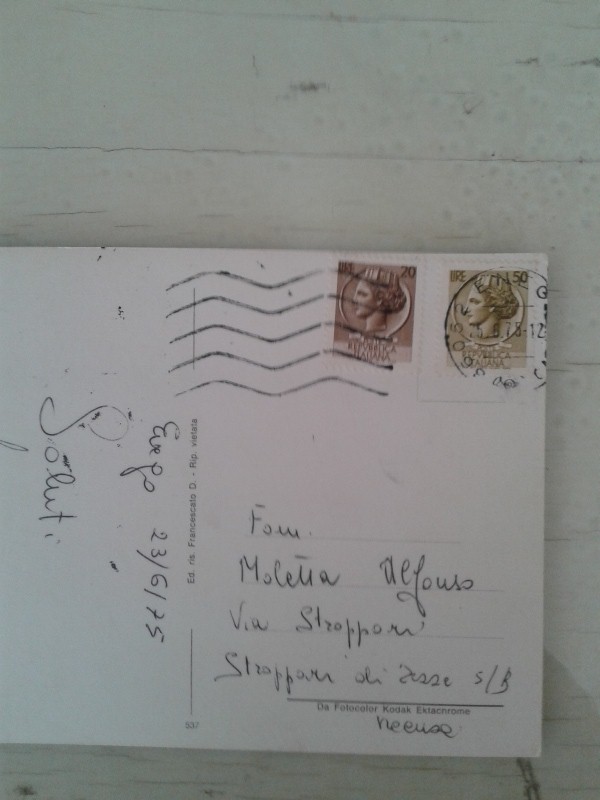 Saluti
23/6/75
Ed. ris. Francescato D. - Rip. vietata
537
LIRE 20
REPUBBLICA
ITALIANA
LIRE 50
REPUBBLICA
ITALIANA
Fam.
Moletta Alfonso
Via Stroppari
Stroppari di Tezze s/B
Da Fotocolor Kodak Ektachrome
Vicenza